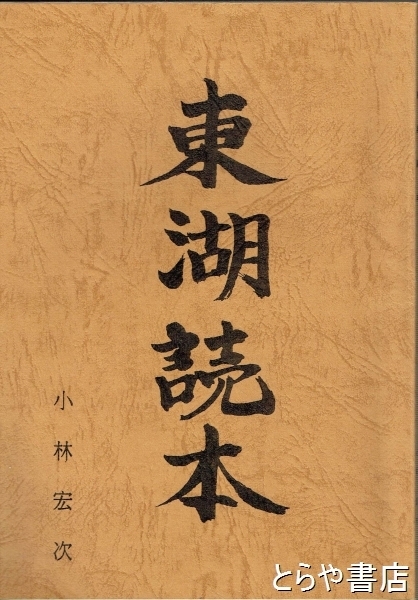 東湖読本
小林宏次
とらや書店